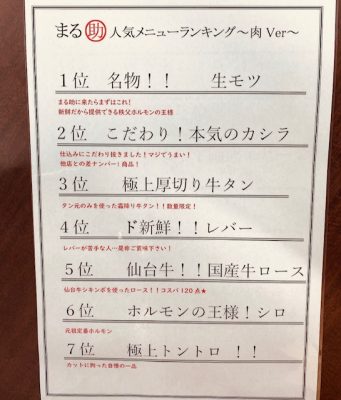 まる助 人気メニューランキング～肉 Ver～
1位 名物！！ 生モツ
まる助に来たらまずはこれ！
新鮮だから提供できる秩父ホルモンの王様
2位 こだわり！本気のカシラ
仕込みにこだわり抜きました！マジでうまい！
他店との差ナンバー1商品！
3位 極上厚切り牛タン
タン元のみを使った霜降り牛タン！！数量限定！
4位 ド新鮮！！レバー
レバーが苦手な人…是非ご賞味下さい！
5位 仙台牛！！国産牛ロース
仙台牛シキンボを使ったロース！！コスパ120点★
6位 ホルモンの王様！シロ
元祖定番ホルモン
7位 極上トントロ ！！
カットに拘った自慢の一品